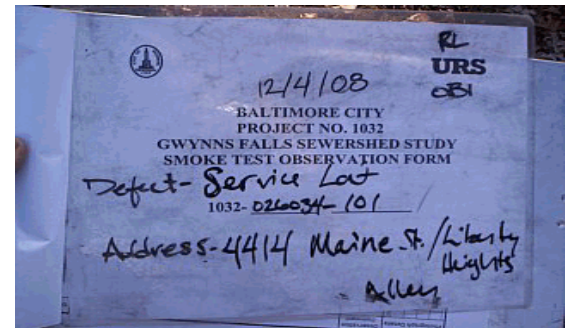 RL
URS
OB1
12/4/08
BALTIMORE CITY
PROJECT NO. 1032
GWYNNS FALLS SEWERSHED STUDY
SMOKE TEST OBSERVATION FORM
Defect- Service Lat
1032- 026034-101
Address- 4414 Maine St. / Liberty
Heights
Alley